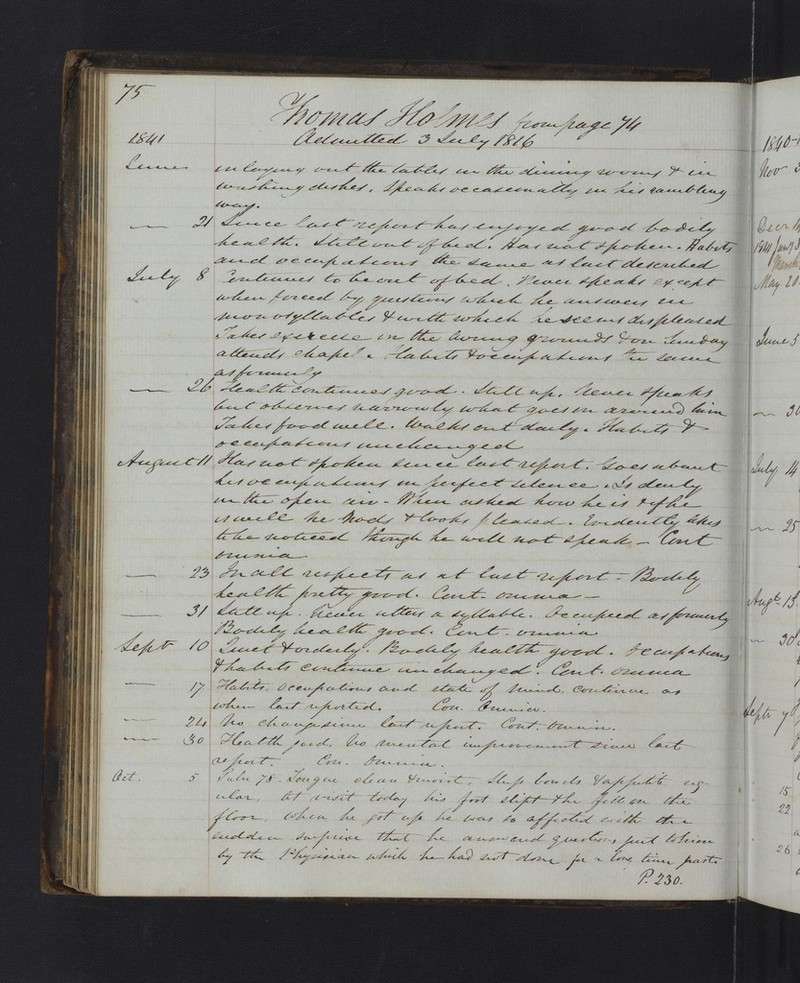 75
Thomas Holmes from page 74
1841 Admitted 3 July 1816
June in laying out the tables in the dining rooms & in
washing dishes. Speaks occasionally in his rambling
way.
— 21 Since last report has enjoyed good bodily
health. Still out of bed. Has not spoken. Habits
and occupations the same as last described
July 8 Continues to be out of bed. Never speaks except
when forced by questions which he answers in
monosyllables & with which he seems displeased
Takes exercise in the airing grounds & on Sunday
attends chapel. Habits & occupations the same
as formerly
— 26 Health continues good. Still up. Never speaks
but observes narrowly what goes on around him
Takes food well. Walks out daily. Habits &
occupations unchanged
August 11 Has not spoken since last report. Goes about
his occupations in perfect silence. Is daily
in the open air - When asked how he is & if he
is well he nods & looks pleased. Evidently likes
to be noticed though he will not speak - Cont
omnia
— 23 In all respects as at last report - Bodily
health pretty good. Cont. omnia -
— 31 Still up. Never utters a syllable. Occupied as formerly
Bodily health good. Cont. omnia
Sept 10 Quiet & orderly. Bodily health good. Occupations
& habits continue unchanged. Cont. omnia
— 17 Habits, occupations and state of mind continue as
when last reported. Con. Omnia.
— 24 No change since last report. Cont. Omnia.
— 30 Health good. No mental improvement since last
report. Con. Omnia.
Oct. 5 Pulse 78. Tongue clean & moist. Sleep bowels & appetite reg
ular. At visit today his foot slipt & he fell on the
floor, when he got up he was so affected with the
sudden surprise that he answered questions put to him
by the Physician which he had not done for a long time past
P. 230.
1840-
Nov 3
Decr
1841 Jany
March
May 20
June 5
— 30
July 14
— 25
Augt 13
— 30
Septr 7
15
22
26